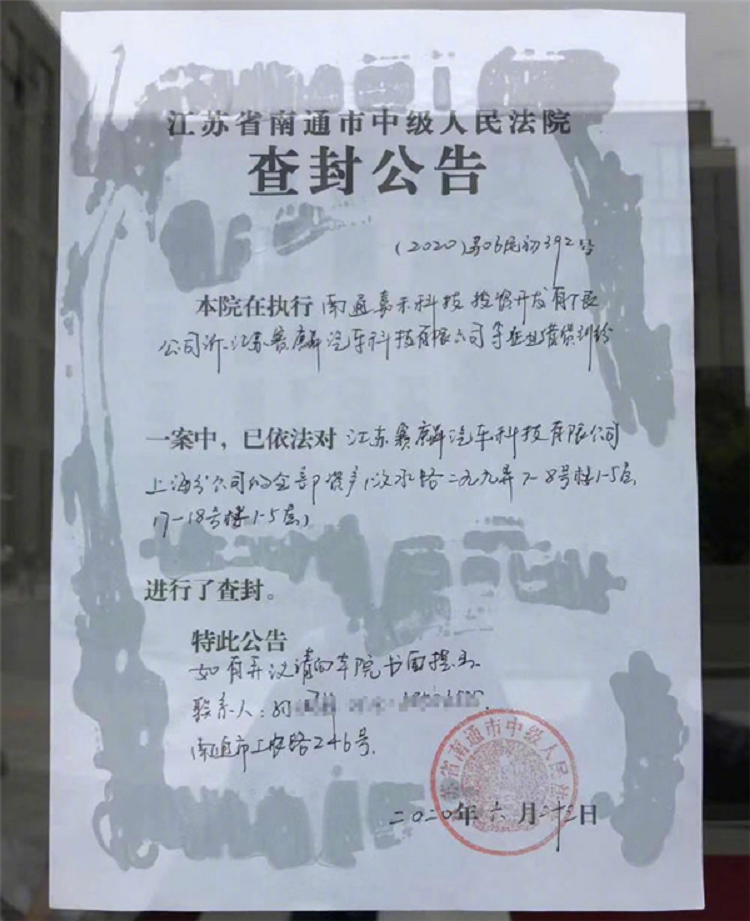 江苏省南通市中级人民法院
查封公告
(2020)苏06民初392号
本院在执行 南通嘉禾科技投资开发有限
公司诉江苏赛麟汽车科技有限公司等企业借贷纠纷
一案中，已依法对 江苏赛麟汽车科技有限公司
上海分公司的全部资产(汶水路二九九弄7-8号楼1-5层
17-18号楼1-5层)
进行了查封。
特此公告
如有异议请向本院书面提出.
联系人：
南通市工农路246号.
江苏省南通市中级人民法院
二〇二〇年六月二十三日